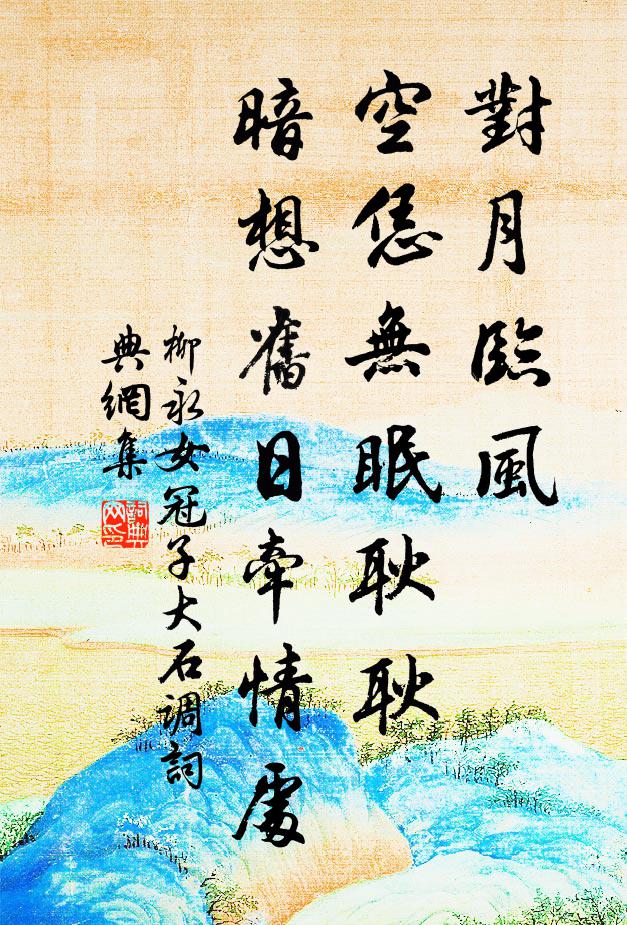 對月臨風
空恁無眠耿耿
暗想舊日牽情處
柳永女冠子大石調詞
典網集
詞典網印